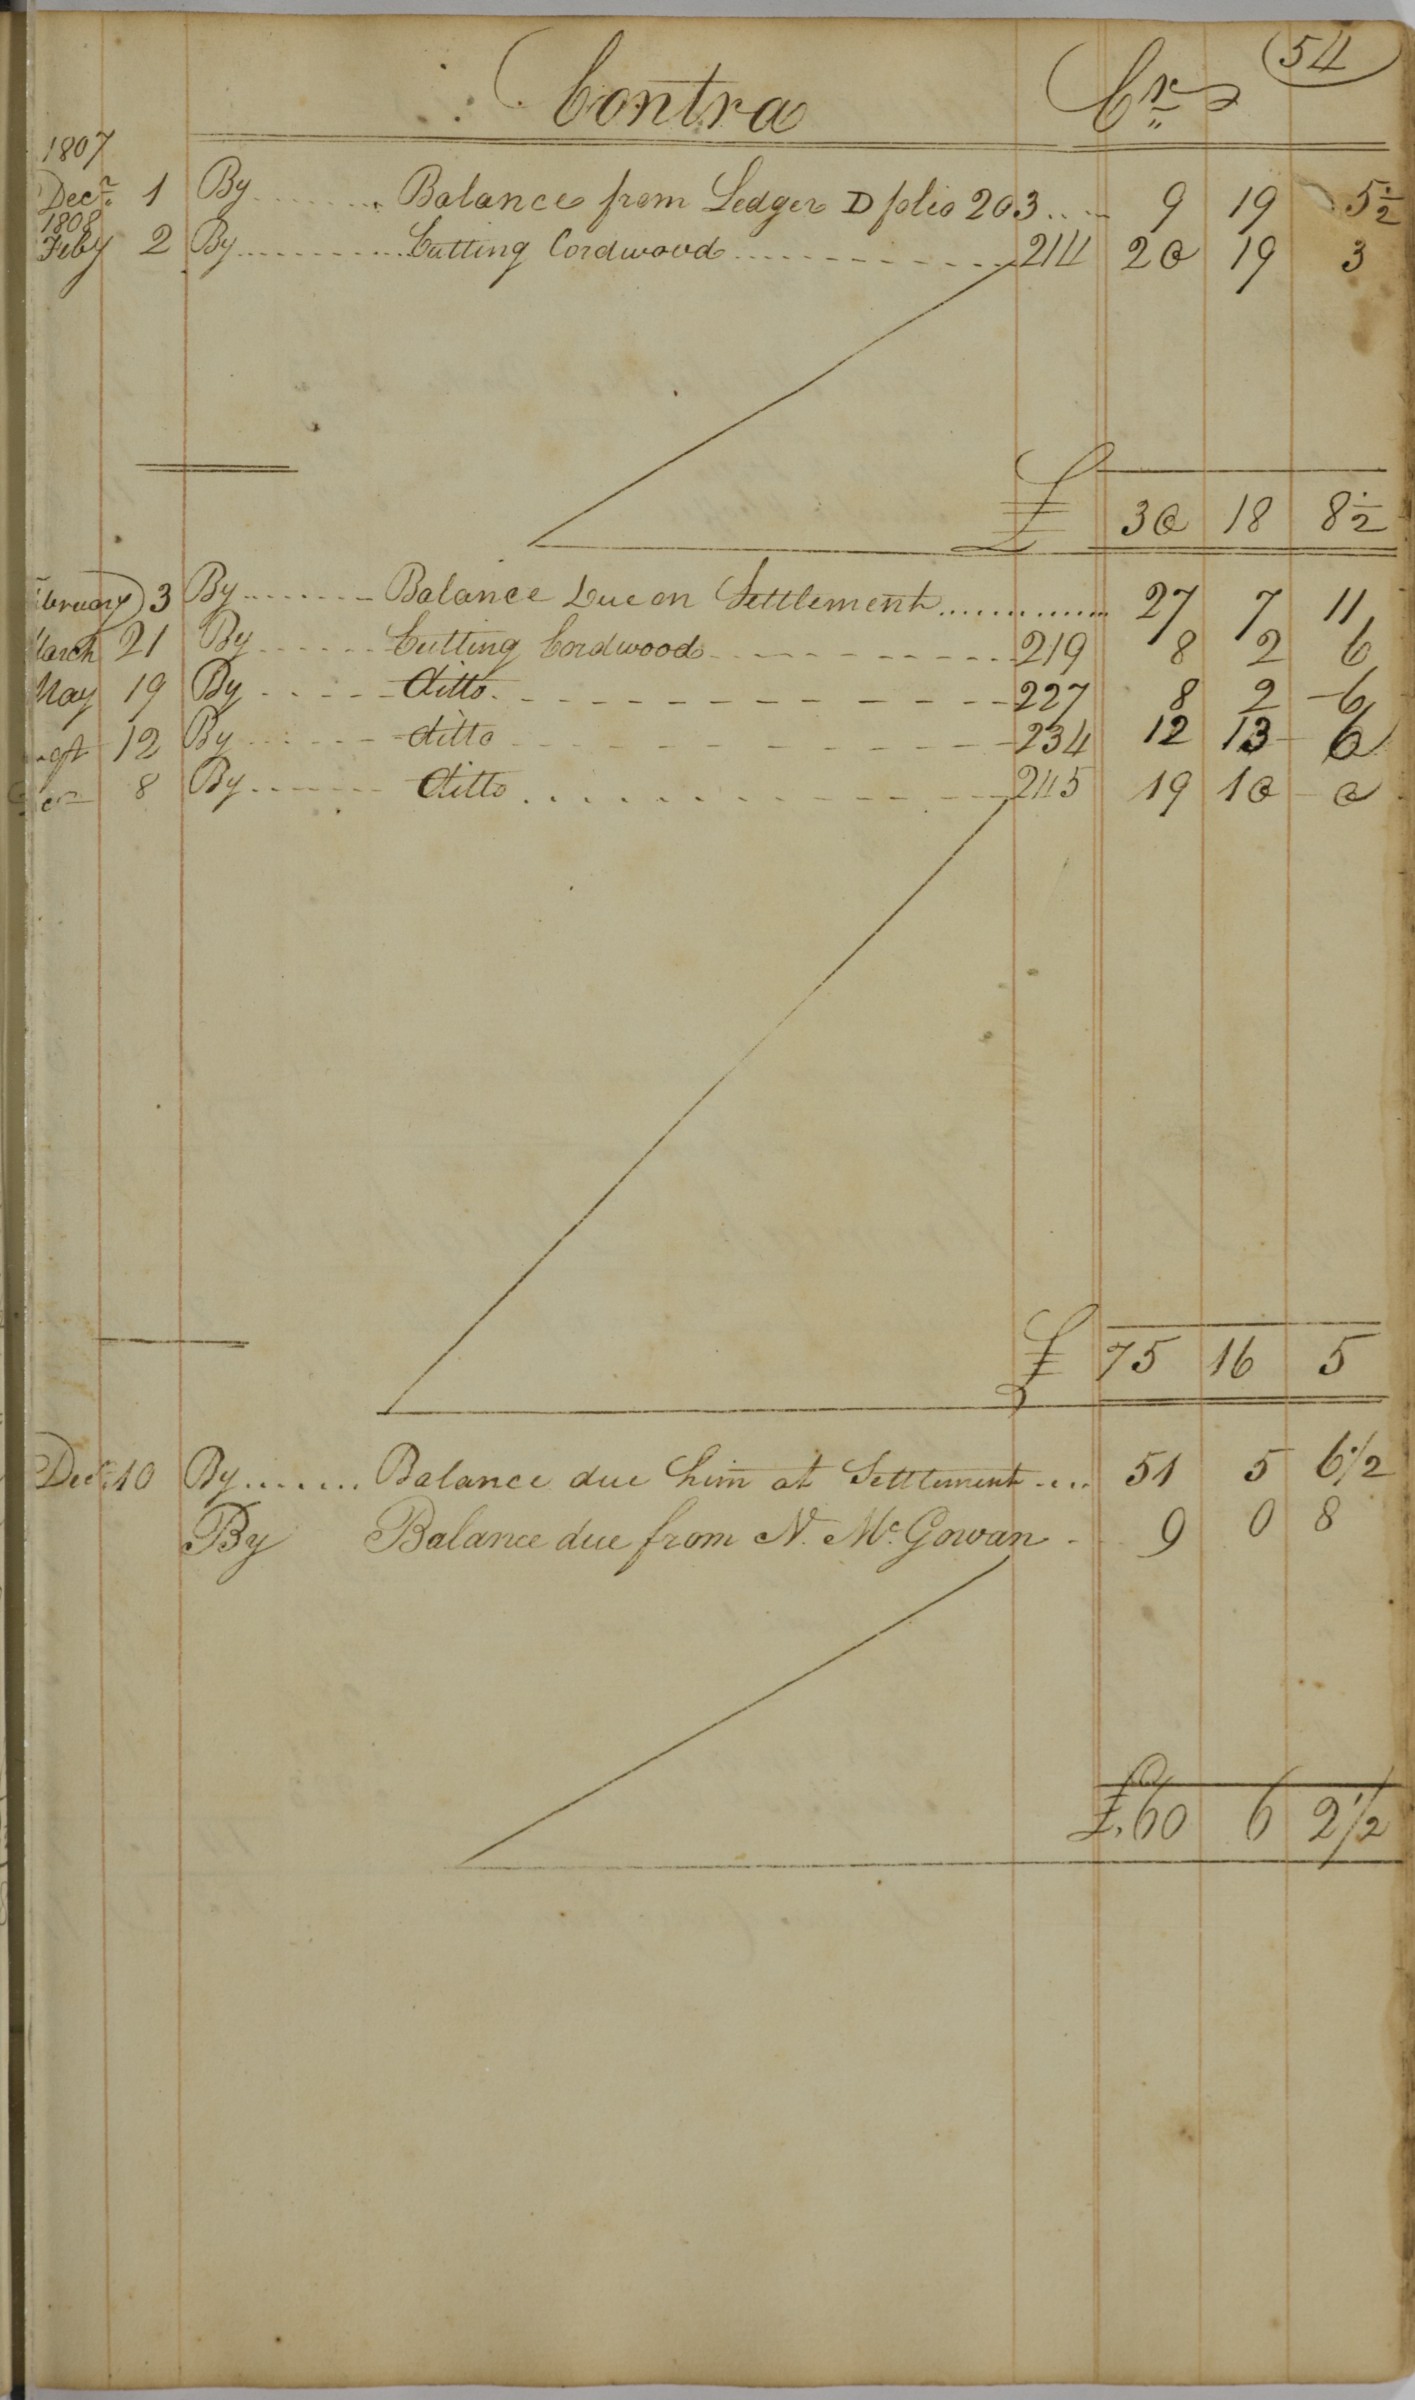 54
Contra Cr
1807
Decr 1 By Balance from Ledger D folio 203 9 19 5½
1808
Feby 2 By Cutting Cordwood 214 20 19 3
£ 30 18 8½
February 3 By Balance Due on Settlement 27 7 11
March 21 By Cutting Cordwood 219 8 2 6
May 19 By ditto 227 8 2 6
12 By ditto 234 12 13 6
8 By ditto 245 19 10 0
£ 75 16 5
Decr 10 By Balance due him at Settlement 51 5 6½
By Balance due from N. Mc Gowan 9 0 8
£ 60 6 2½